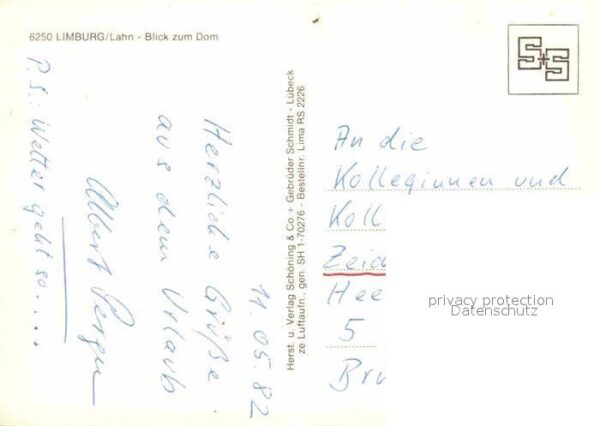 6250 LIMBURG/Lahn - Blick zum Dom
11.05.82
Herzliche Grüße
aus dem Urlaub
Albert
P.S.: Wetter geht so....
Herst. u. Verlag Schöning & Co + Gebrüder Schmidt - Lübeck
ze Luftaufn., gen. SH 1-70276 - Bestellnr. Lima RS 2226
S+S
An die
Kolleginnen und
Koll
Zeic
Hee
5
Bru
privacy protection
Datenschutz